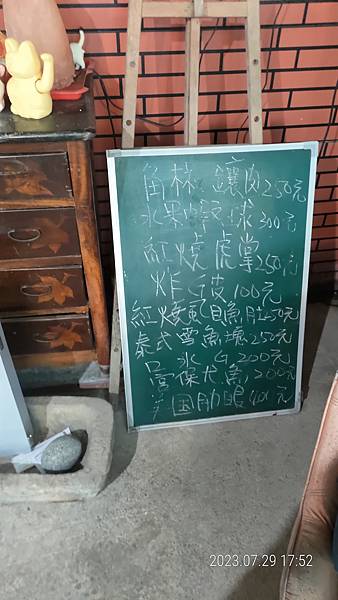 角林鑲肉250元
水果蝦球300元
紅燒虎掌250元
炸G皮100元
紅燒虱目魚肚250元
泰式雪魚塊250元
口水G200元
宮保尤魚200元
国眼400元
2023.07.29 17:52